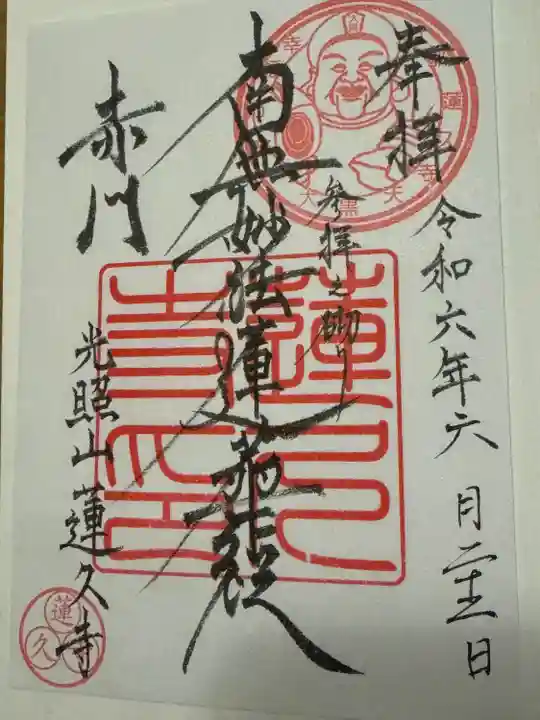 奉拝
令和六年六月二十三日
参拝之砌り
南無妙法蓮華経
赤門
光照山蓮久寺
蓮久寺印
大黒天
蓮久寺